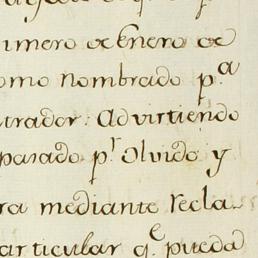 imero de Enero de
omo nombrado p.ª
trador: Advirtiendo
pasado p.r Olvido y
ra mediante recla
articular q.e pueda